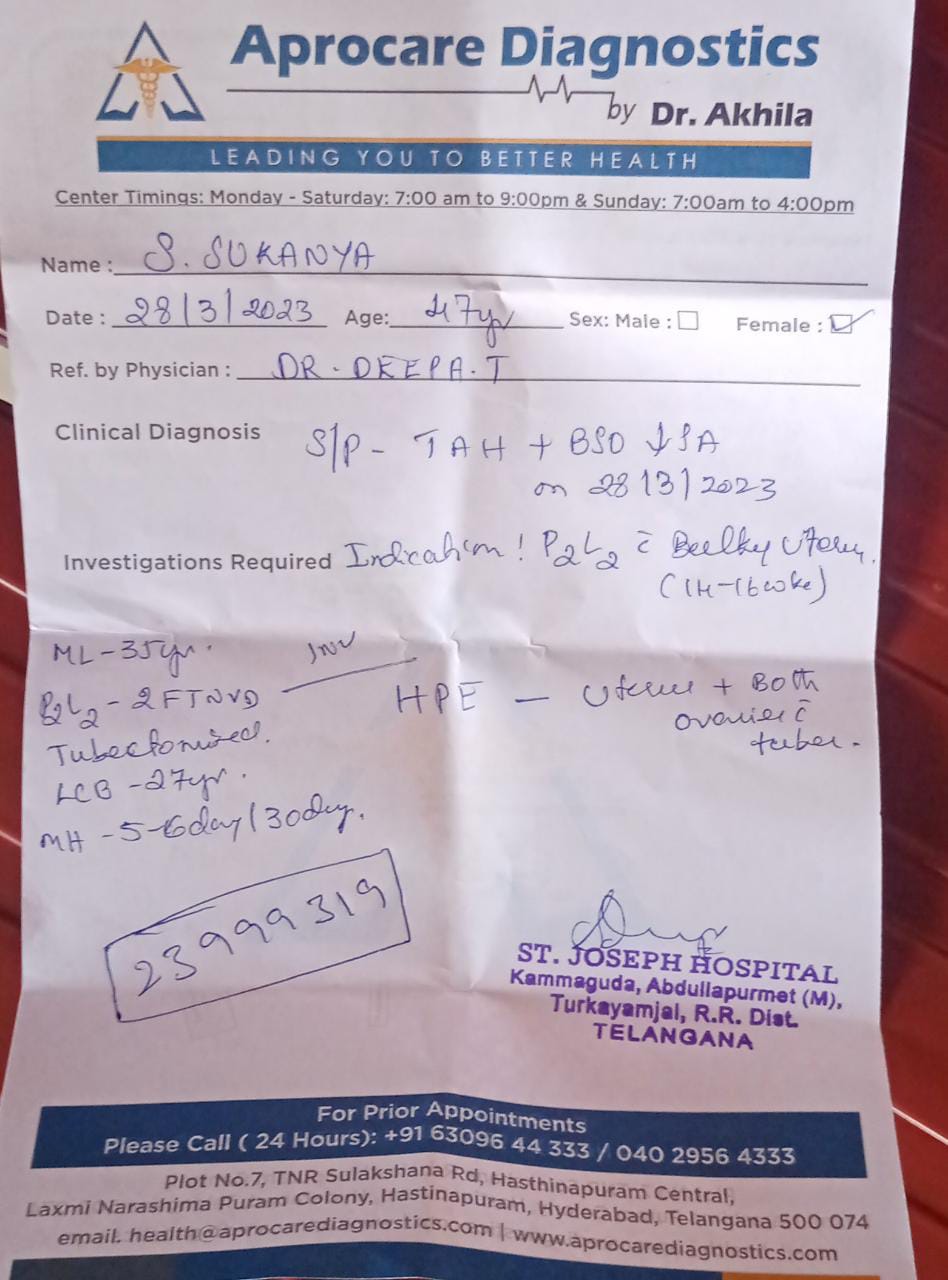 Aprocare Diagnostics
by Dr. Akhila
LEADING YOU TO BETTER HEALTH
Center Timings: Monday - Saturday: 7:00 am to 9:00pm & Sunday: 7:00am to 4:00pm
Name : S. SUKANYA
Date : 28/3/2023 Age: 47yr Sex: Male : Female :
Ref. by Physician : DR. DEEPA.T
Clinical Diagnosis S/P - TAH + BSO ↓ SA
on 28/3/2023
Investigations Required Indication: P2L2 c̄ Bulky uterus.
(14-16wks)
ML - 35yr. Inv
P2L2 - 2FTNVD HPE - Uterus + Both
ovaries c̄
Tubectomised. tubes.
LCB - 27yr.
MH - 5-6day/30day.
23999319
ST. JOSEPH HOSPITAL
Kammaguda, Abdullapurmet (M),
Turkayamjal, R.R. Dist.
TELANGANA
For Prior Appointments
Please Call ( 24 Hours): +91 63096 44 333 / 040 2956 4333
Plot No.7, TNR Sulakshana Rd, Hasthinapuram Central,
Laxmi Narashima Puram Colony, Hastinapuram, Hyderabad, Telangana 500 074
email. health@aprocarediagnostics.com | www.aprocarediagnostics.com